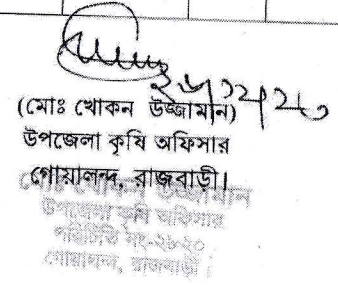 (মোঃ খোকন উজ্জামান)
উপজেলা কৃষি অফিসার
গোয়ালন্দ, রাজবাড়ী।
মোঃ খোকন উজ্জামান
উপজেলা কৃষি অফিসার
পরিচিতি নং-২৮২০
গোয়ালন্দ, রাজবাড়ী।